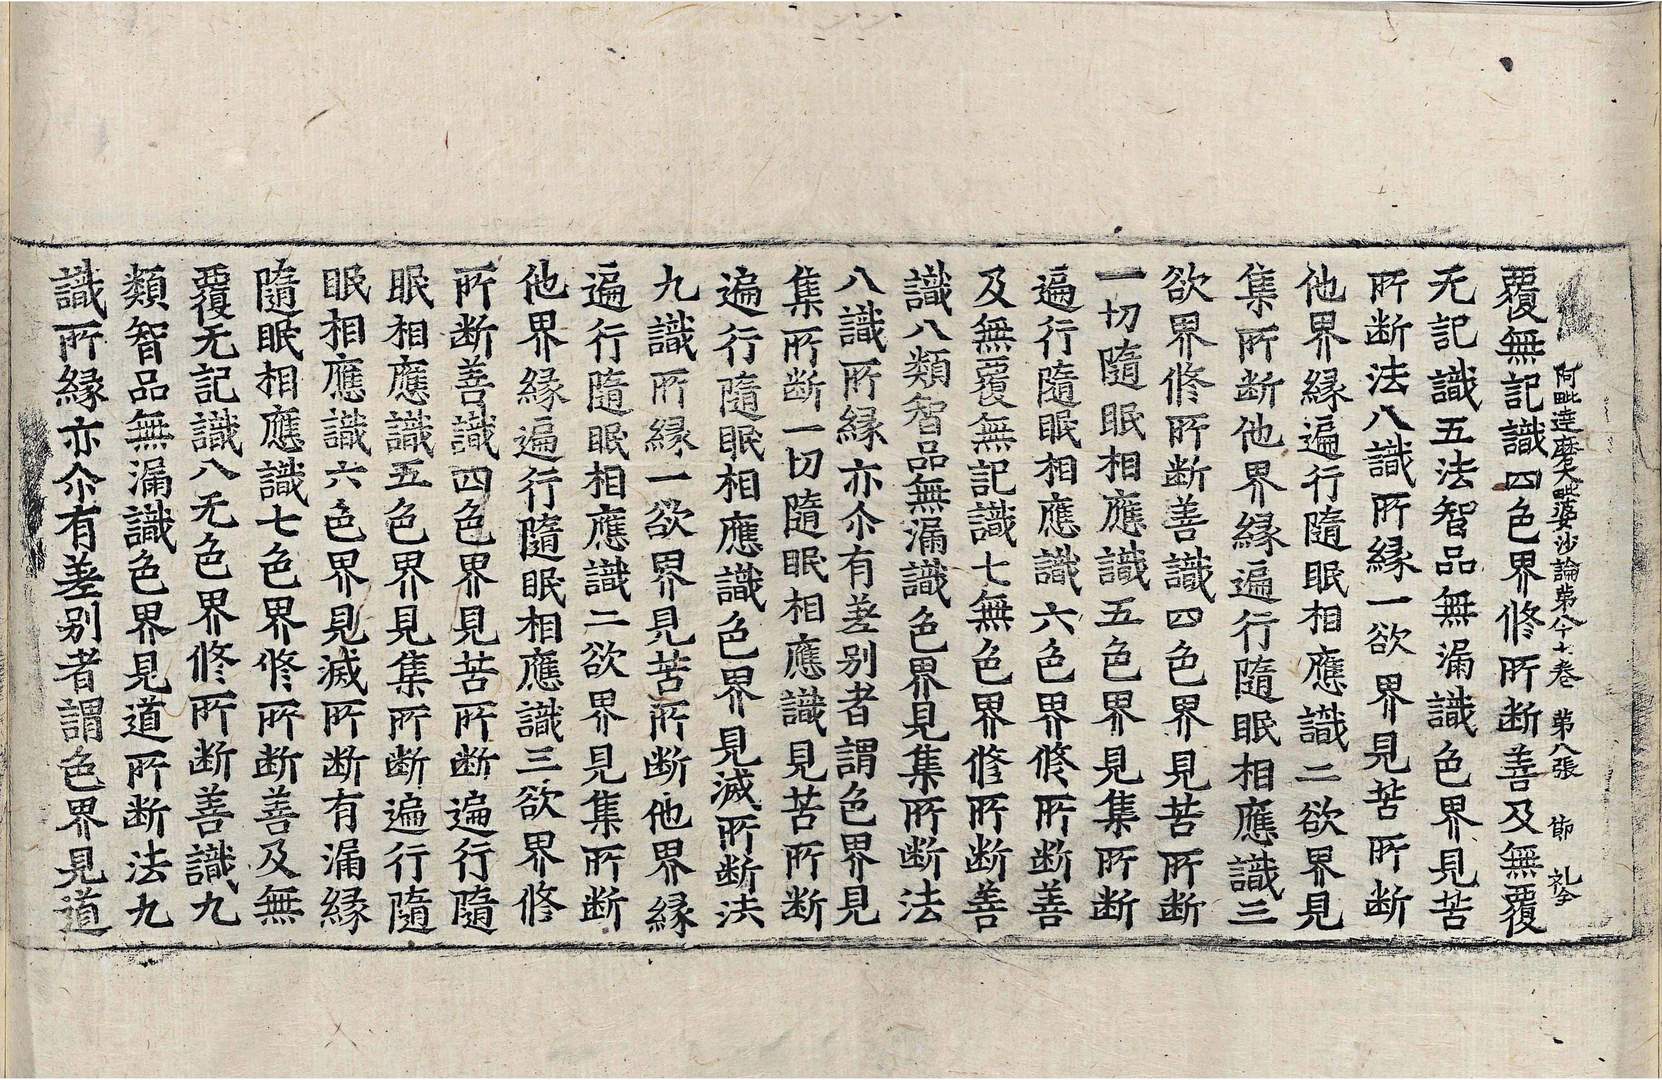 阿毗達磨大毗婆沙論第八十七卷 第八張 節 礼全
覆無記識四色界修所断善及無覆
无記識五法智品無漏識色界見苦
所断法八識所縁一欲界見苦所断
他界縁遍行隨眠相應識二欲界見
集所断他界縁遍行隨眠相應識三
欲界修所断善識四色界見苦所断
一切隨眠相應識五色界見集所断
遍行隨眠相應識六色界修所断善
及無覆無記識七無色界修所断善
識八類智品無漏識色界見集所断法
八識所縁亦尒有差别者謂色界見
集所断一切隨眠相應識見苦所断
遍行隨眠相應識色界見滅所断法
九識所縁一欲界見苦所断他界縁
遍行隨眠相應識二欲界見集所断
他界縁遍行隨眠相應識三欲界修
所断善識四色界見苦所断遍行隨
眠相應識五色界見集所断遍行隨
眠相應識六色界見滅所断有漏縁
隨眠相應識七色界修所断善及無
覆无記識八无色界修所断善識九
類智品無漏識色界見道所断法九
識所縁亦尒有差别者謂色界見道